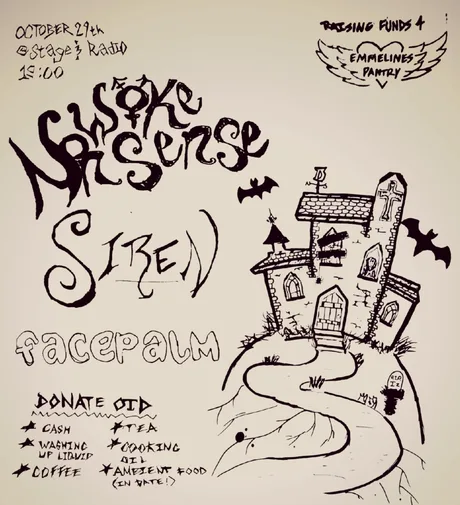 OCTOBER 29th
@ Stage & Radio
19:00
RAISING FUNDS 4
EMMELINES
PANTRY
WOKE
NONSENSE
SIREN
facepalm
DONATE OTD
CASH
WASHING
UP LIQUID
COFFEE
TEA
COOKING
OIL
AMBIENT FOOD
(IN DATE!)
RIP